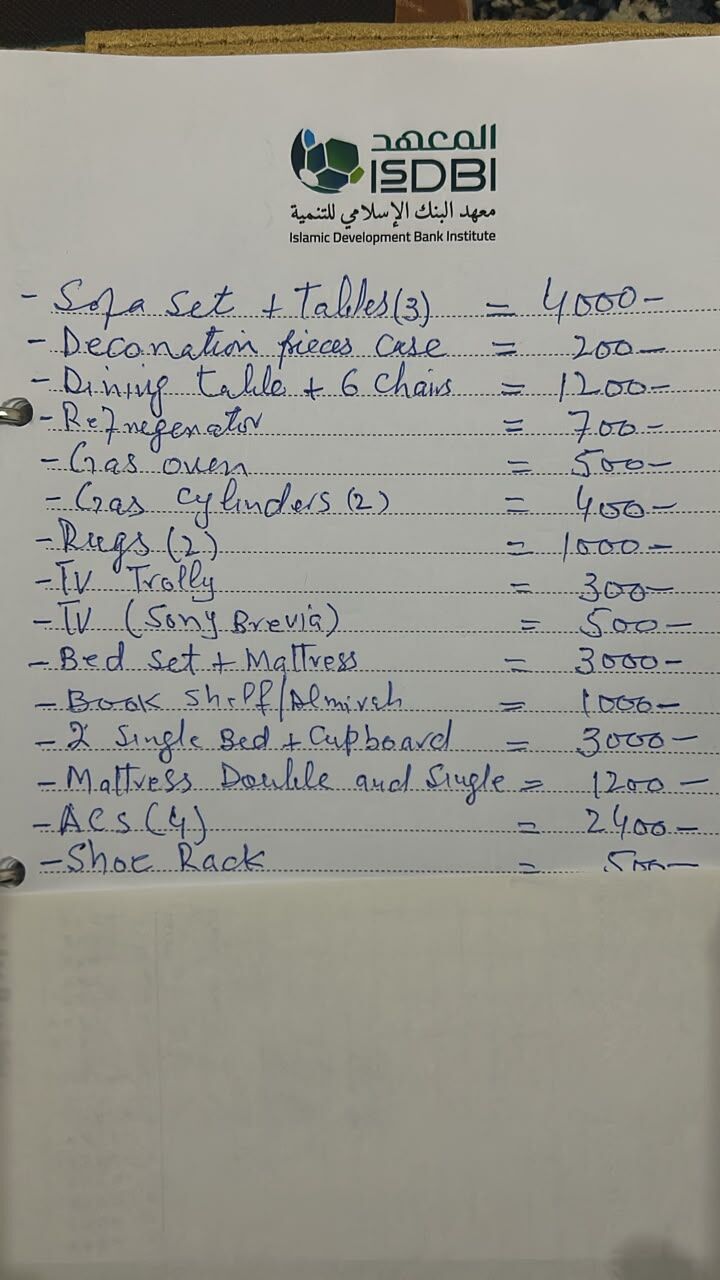 المعهد
ISDBI
معهد البنك الإسلامي للتنمية
Islamic Development Bank Institute
- Sofa set + Tables (3) = 4000-
- Deconation pieces case = 200-
- Dining table + 6 chairs = 1200-
- Refregenator = 700-
- Gas oven = 500-
- Gas cylinders (2) = 400-
- Rugs (2) = 1000-
- TV Trolly = 300-
- TV (Sony Brevia) = 500-
- Bed Set + Mattress = 3000-
- Book Shelf/Almirah = 1000-
- 2 Single Bed + Cupboard = 3000-
- Mattress Double and Single = 1200-
- ACs (4) = 2400-
- Shoe Rack = 500-